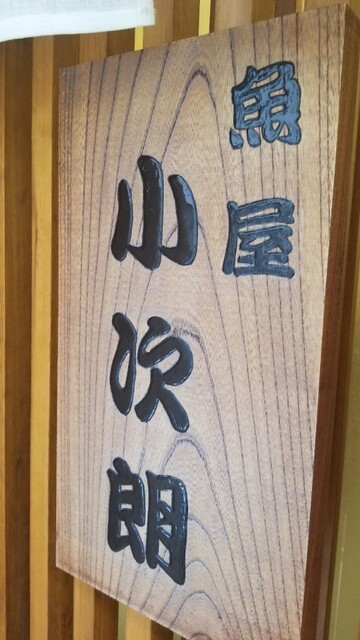 魚屋
小次朗